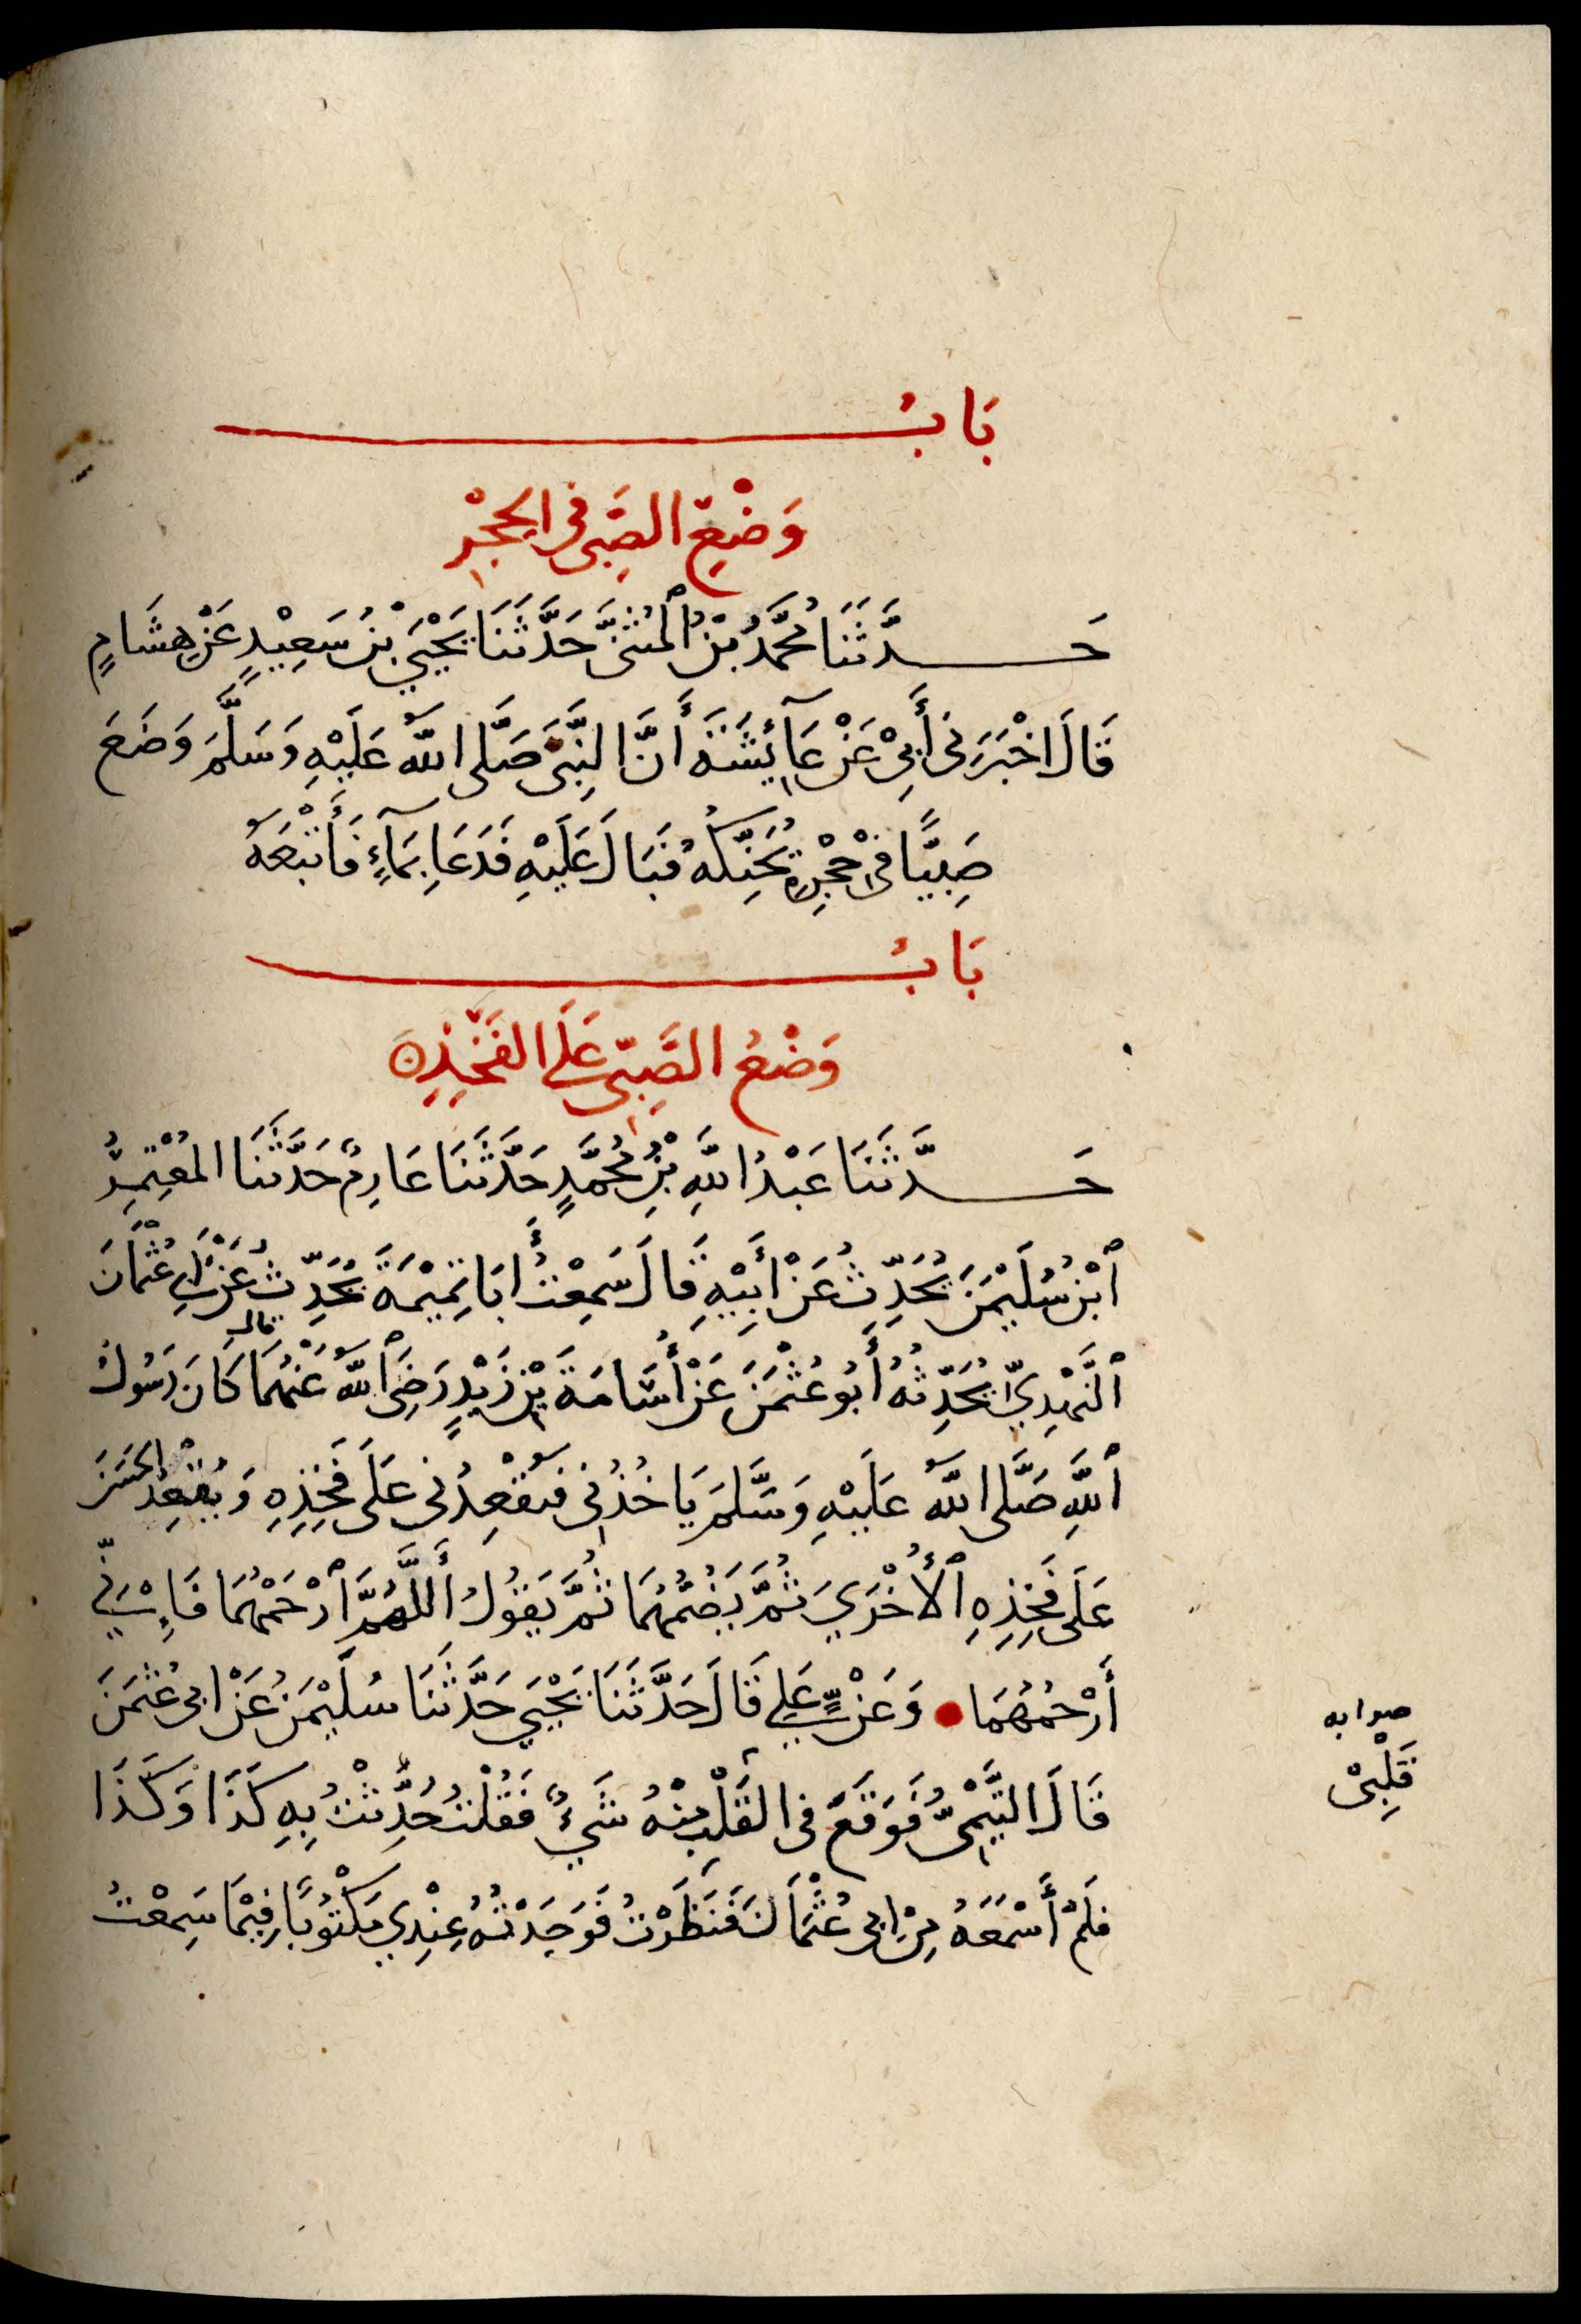 بَابُ
وَضْعِ الصَّبِيِّ فِي الْحِجْرِ
حَدَّثَنَا مُحَمَّدُ بْنُ ٱلْمُثَنَّى حَدَّثَنَا يَحْيَى بْنُ سَعِيْدٍ عَنْ هِشَامٍ
قَالَ اخْبَرَنِى أَبِىْ عَنْ عَآئِشَةَ أَنَّ النَّبِىَّ صَلَّى اللهُ عَلَيْهِ وَسَلَّمَ وَضَعَ
صَبِيًّا فِىْ حِجْرِهِ يُحَنِّكُهُ فَبَالَ عَلَيْهِ فَدَعَا بِمَآءٍ فَأَتْبَعَهُ
بَابُ
وَضْعُ الصَّبِىِّ عَلَى الفَخِذِ
حَدَّثَنَا عَبْدُ اللهِ بْنُ مُحَمَّدٍ حَدَّثَنَا عَارِمٌ حَدَّثَنَا المُعْتَمِرُ
ٱبْنُ سُلَيْمٰنَ يُحَدِّثُ عَنْ أَبِيْهِ قَالَ سَمِعْتُ أَبَا تَمِيْمَةَ يُحَدِّثُ عَنْ أَبِى عُثْمَانَ
ٱلنَّهْدِيِّ يُحَدِّثُهُ أَبُو عُثْمٰنَ عَنْ أُسَامَةَ بْنِ زَيْدٍ رَضِىَ ٱللهُ عَنْهُمَا قال كَانَ رَسُولُ
ٱللهِ صَلَّى اللهُ عَلَيْهِ وَسَلَّمَ يَاخُذُنِى فَيُقْعِدُنِى عَلَى فَخِذِهِ وَيُقْعِدُ الْحَسَنَ
عَلَى فَخِذِهِ ٱلْأُخْرَىَ ثُمَّ يَضُمُّهُمَا ثُمَّ يَقُوْلُ أَللَّهُمَّ ٱرْحَمْهُمَا فَإِنِّى
أَرْحَمُهُمَا وَعَنْ عَلِيٍّ قَالَ حَدَّثَنَا يَحْيَى حَدَّثَنَا سُلَيْمٰنُ عَنْ ابى عُثْمٰنَ
قَالَ التَّيْمِىُّ فَوَقَعَ فى القَلْبِ مِنْهُ شَيْءٌ فَقُلْتُ حُدِّثْتُ بِهِ كَذَا وَكَذَا
فَلَمْ أَسْمَعْهُ مِنْ ابى عُثْمَانَ فَنَظَرْتُ فَوَجَدْتُهُ عِنْدِي مَكْتُوْبًا فِيْمَا سَمِعْتُ
صوابه
قَلْبِىْ